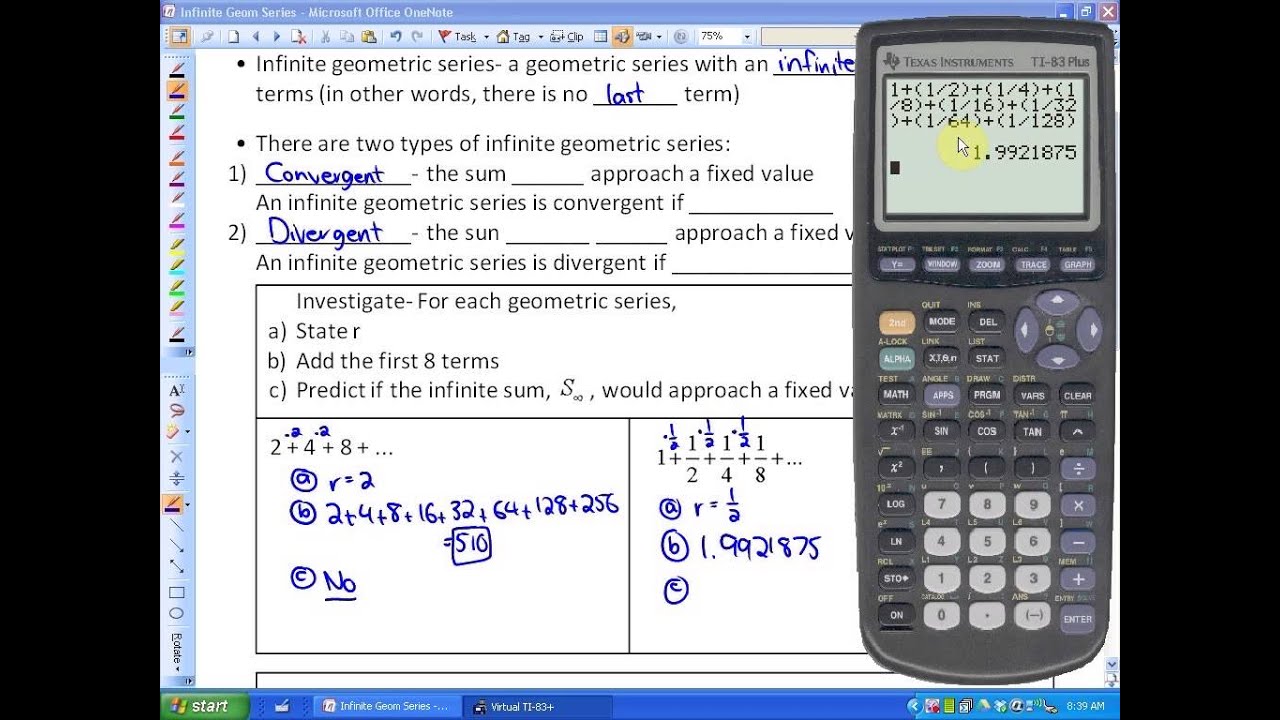 Infinite Geom Series - Microsoft Office OneNote
Task Tag Clip 75%
• Infinite geometric series- a geometric series with an infinite
terms (in other words, there is no last term)
• There are two types of infinite geometric series:
1) Convergent - the sum ______ approach a fixed value
An infinite geometric series is convergent if ____________
2) Divergent - the sun _______ ______ approach a fixed v
An infinite geometric series is divergent if
Investigate- For each geometric series,
a) State r
b) Add the first 8 terms
c) Predict if the infinite sum, S∞, would approach a fixed va
·2 ·2
2+4+8+...
ⓐ r=2
ⓑ 2+4+8+16+32+64+128+256
=510
ⓒ No
·1/2 ·1/2 ·1/2
1+1/2+1/4+1/8+...
ⓐ r=1/2
ⓑ 1.9921875
ⓒ
Rotate
TEXAS INSTRUMENTS TI-83 Plus
1+(1/2)+(1/4)+(1
/8)+(1/16)+(1/32
)+(1/64)+(1/128)
1.9921875
STATPLOT F1 TBLSET F2 FORMAT F3 CALC F4 TABLE F5
Y= WINDOW ZOOM TRACE GRAPH
QUIT INS
2nd MODE DEL
A-LOCK LINK LIST
ALPHA X,T,θ,n STAT
TEST A ANGLE B DRAW C DISTR
MATH APPS PRGM VARS CLEAR
MATRX D SIN⁻¹ E COS⁻¹ F TAN⁻¹ G π H
x⁻¹ SIN COS TAN ^
√ I EE J { K } L e M
x² , ( ) ÷
10ˣ N u O v P w Q [ R
LOG 7 8 9 ×
eˣ S L4 T L5 U L6 V ] W
LN 4 5 6 −
RCL X L1 Y L2 Z L3 θ MEM "
STO▸ 1 2 3 +
OFF CATALOG i ANS ? ENTRY SOLVE
ON 0 . (−) ENTER
start Infinite Geom Series -... Virtual TI-83+ 8:39 AM